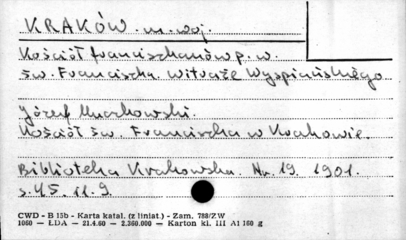 KRAKÓW . m. woj.
Kościół franciszkanów p. w.
św. Franciszka. Witraże Wyspiańskiego
Józef Muczkowski.
Kościół św. Franciszka w Krakowie.
Biblioteka Krakowska. Nr. 19. 1901.
s. 45. il. 9.
CWD - B 15b - Karta katal. (z liniat.) - Zam. 788/ZW
1060 — ŁDA — 21.4.60 — 2.360.000 — Karton kl. III A1 160 g